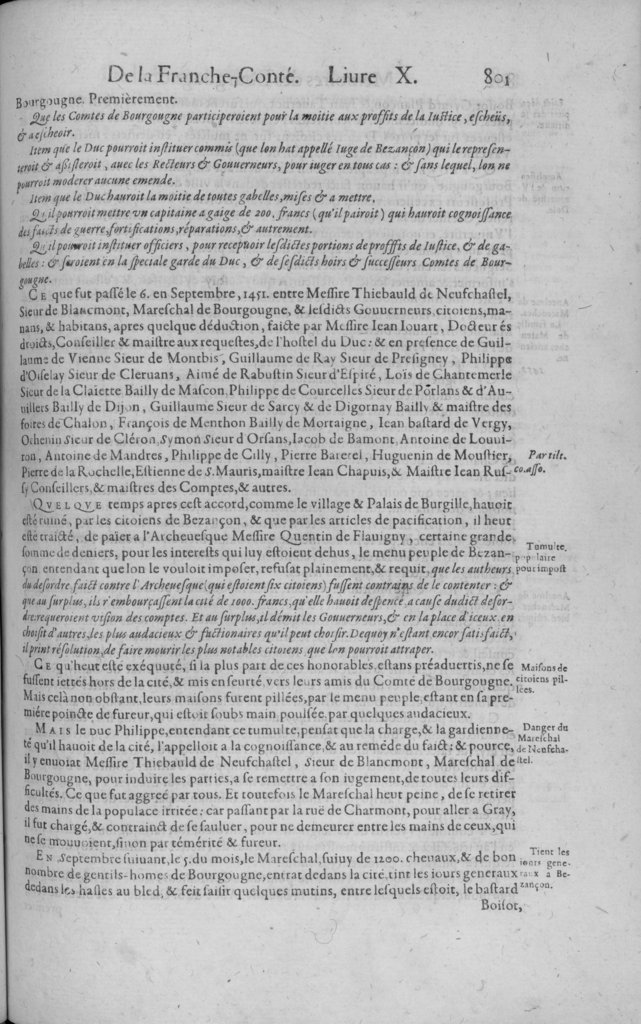 De la Franche-Conté. Liure X. 801
Bourgougne. Premièrement.
Que les Comtes de Bourgougne participeroient pour la moitie aux proffits de la Iustice, escheüs,
& a escheoir.
Item que le Duc pourroit instituer commis (que lon hat appellé Iuge de Bezançon) qui le represen-
teroit & assisteroit, auec les Recteurs & Gouuerneurs, pour iuger en tous cas : & sans lequel, lon ne
pourroit moderer aucune emende.
Item que le Duc hauroit la moitie de toutes gabelles, mises & a mettre.
Qu'il pourroit mettre vn capitaine a gaige de 200. francs (qu'il pairoit) qui hauroit cognoissance
des faicts de guerre, fortifications, réparations, & autrement.
Qu'il pourroit instituer officiers, pour receuoir lesdictes portions de profffis de Iustice, & de ga-
belles : & seroient en la speciale garde du Duc, & de sesdicts hoirs & successeurs Comtes de Bour-
gougne.
CE que fut passé le 6. en Septembre, 1451. entre Messire Thiebauld de Neufchastel,
Sieur de Blancmont, Mareschal de Bourgougne, & lesdicts Gouuerneurs, citoiens, ma-
nans, & habitans, apres quelque déduction, faicte par Messire Iean Iouart, Docteur és
droicts, Conseiller & maistre aux requestes, de l'hostel du Duc: & en presence de Guil-
laume de Vienne Sieur de Montbis, Guillaume de Ray Sieur de Presigney, Philippe
d'Oiselay Sieur de Cleruans, Aimé de Rabustin Sieur d'Espiré, Loïs de Chantemerle
Sieur de la Claiette Bailly de Mascon, Philippe de Courcelles Sieur de Pôrlans & d'Au-
uillers Bailly de Dijon, Guillaume Sieur de Sarcy & de Digornay Bailly & maistre des
foires de Chalon, François de Menthon Bailly de Mortaigne, Iean bastard de Vergy,
Othenin Sieur de Cléron, Symon Sieur d'Orsans, Iacob de Bamont, Antoine de Louui-
ron, Antoine de Mandres, Philippe de Cilly, Pierre Baterel, Huguenin de Moustier,
Pierre de la Rochelle, Estienne de S. Mauris, maistre Iean Chapuis, & Maistre Iean Rus-
sy Conseillers, & maistres des Comptes, & autres.
Par tilt.
co. asso.
QVELQVE temps apres cest accord, comme le village & Palais de Burgille, hauoit
esté ruiné, par les citoiens de Bezançon, & que par les articles de pacification, il heut
esté traicté, de païer a l'Archeuesque Messire Quentin de Flauigny, certaine grande
somme de deniers, pour les interests qui luy estoient dehus, le menu peuple de Bezan-
çon, entendant que lon le vouloit imposer, refusat plainement, & requit, que les autheurs
du desordre faict contre l'Archeuesque (qui estoient six citoiens) fussent contrains de le contenter : &
que au surplus, ils r'embourçassent la cité de 1000. francs, qu'elle hauoit despence a cause dudict desor-
dre: requeroient vision des comptes. Et au surplus, il démit les Gouuerneurs, & en la place d'iceux en
choisit d'autres, les plus audacieux & factionaires qu'il peut choisir. De quoy n'estant encor satisfaict,
il print résolution, de faire mourir les plus notables citoiens que lon pourroit attraper.
Tumulte
populaire
pour impost
CE qu'heut esté exéquuté, si la plus part de ces honorables, estans préaduertis, ne se
fussent iettés hors de la cité, & mis en seurté, vers leurs amis du Comté de Bourgougne.
Mais cela non obstant, leurs maisons furent pillées, par le menu peuple, estant en sa pre-
mière poincte de fureur, qui estoit soubs main poulsée, par quelques audacieux.
Maisons de
citoiens pil-
lées.
MAIS le Duc Philippe, entendant ce tumulte, pensat que la charge, & la gardienne-
té qu'il hauoit de la cité, l'appelloit a la cognoissance, & au reméde du faict: & pource,
il y enuoiat Messire Thiebauld de Neufchastel, Sieur de Blancmont, Mareschal de
Bourgougne, pour induire les parties, a se remettre a son iugement, de toutes leurs dif-
ficultés. Ce que fut aggreé par tous. Et toutefois le Mareschal heut peine, de se retirer
des mains de la populace irritée: car passant par la ruë de Charmont, pour aller a Gray,
il fut chargé, & contrainct de se sauluer, pour ne demeurer entre les mains de ceux, qui
ne se mouuoient, sinon par témérité & fureur.
Danger du
Mareschal
de Neufcha-
stel.
EN Septembre suiuant, le 5. du mois, le Mareschal, suiuy de 1200. cheuaux, & de bon
nombre de gentils-homes de Bourgougne, entrat dedans la cité, tint les iours generaux
dedans les hasles au bled, & feit saisir quelques mutins, entre lesquels estoit, le bastard
Tient les
iours gene-
raux a Be-
zançon.
Boisot,